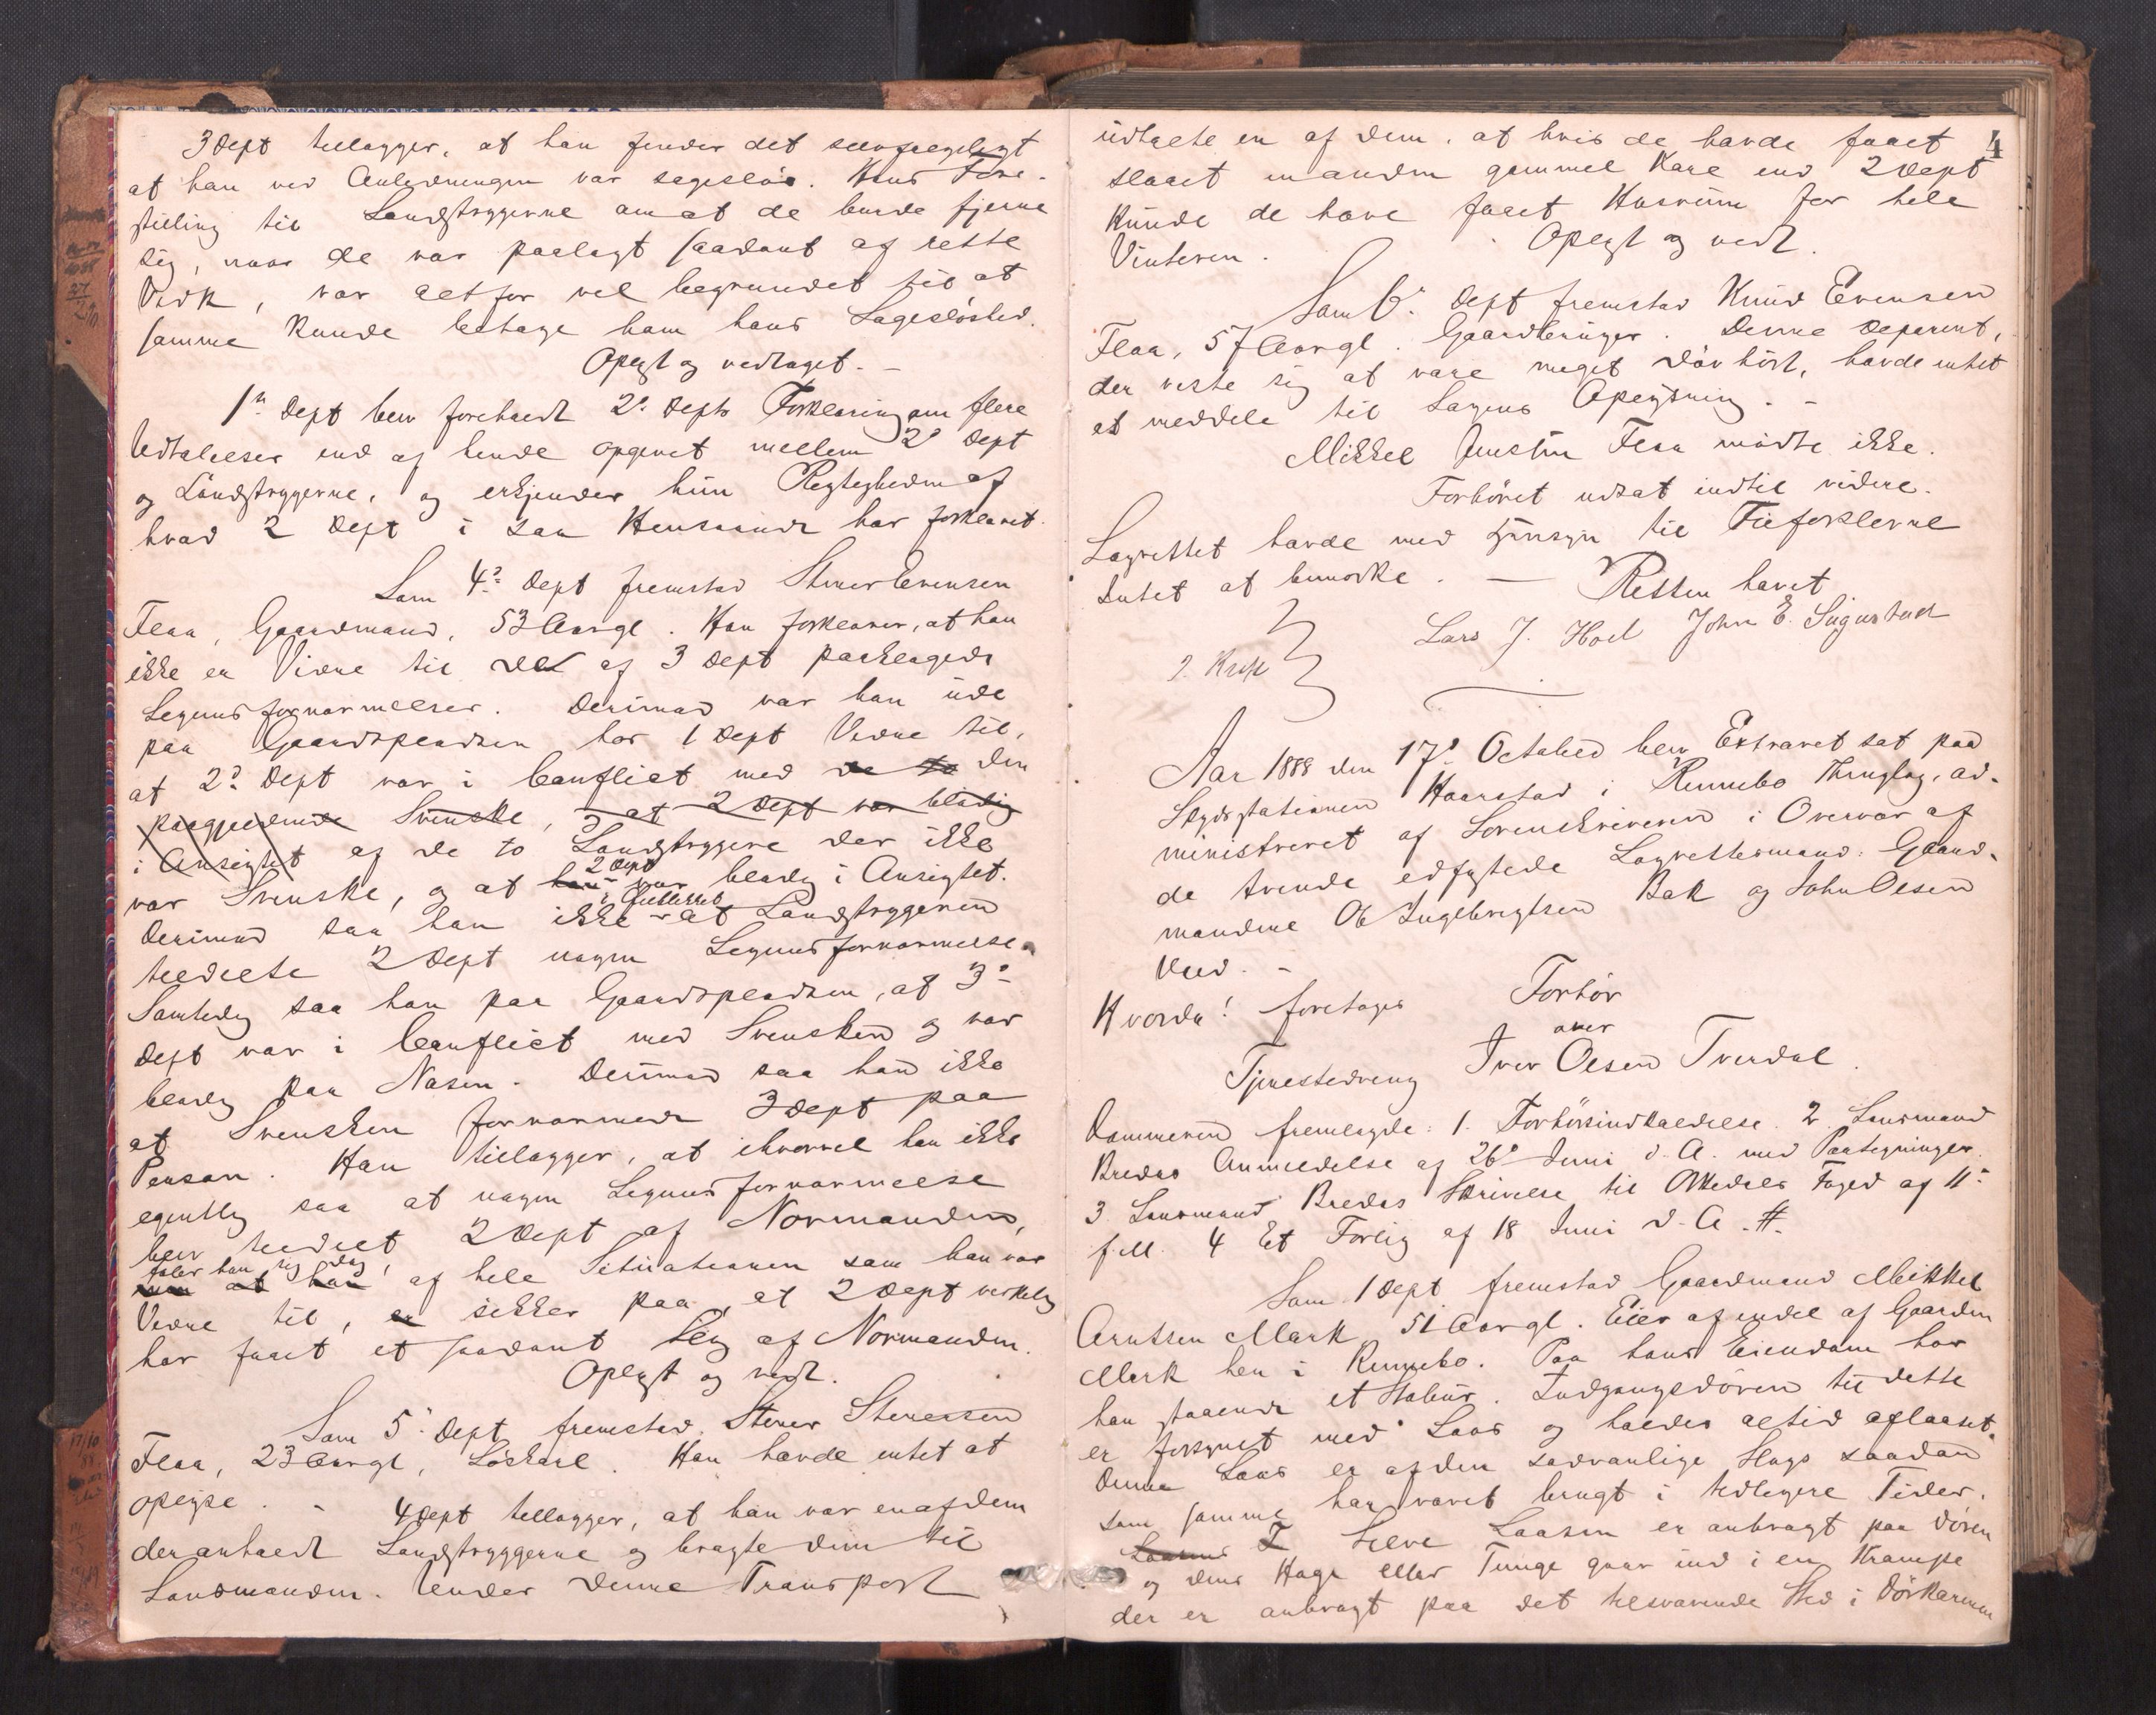 3 Dept tillægger, at han finder det selvfølgeligt
at han ved Anledningen var sagesløs. Hans Fore-
stilling til Landstrygerne om at de burde fjerne
sig, naar de var paalagt saadant af rette
Vedk, var altfor vel begrundet til at
samme kunde betage ham hans Sagesløshed.
Oplæst og vedtaget. -
1ste Dept blev foreholdt 2den Depts Forklaring om flere
Udtalelser end af hende opgivet mellem 2den Dept
og Landstrygerne, og erkjender hun Rigtigheden af
hvad 2 Dept i saa Henseende har forklaret.
Som 4de Dept fremstod Stener Evensen
Flaa, Gaardmand, 53 Aar gl. Han forklarer, at han
ikke er Vidne til de af 3 Dept paaklagede
Legemsfornærmelser. Derimod var han ude
paa Gaardspladsen hos 1 Dept Vidne til,
at 2den Dept var i Conflict med de to den
paagjældende Svenske, at 2 Dept var blodig
i Ansigtet af de to Landstrygere der ikke
var Svenske, og at han 2 Dept var blodig i Ansigtet.
Derimod saa han ikke i Øieblikket at Landstrygeren
tildelte 2 Dept nogen Legemsfornærmelse.
Samtidig saa han paa Gaardspladsen, at 3de
Dept var i Conflict med Svensken og var
blodig paa Næsen. Derimod saa han ikke
at Svensken fornærmede 3 Dept paa
Person. Han tillægger, at ihvorvel han ikke
egentlig saa at nogen Legemsfornærmelse
blev tildelt 2 Dept af Normanden,
føler han sig dog,
men at han af hele Situationen som han var
Vidne til, er sikker paa, at 2 Dept virkelig
har faaet et saadant Slag af Normanden.
Oplæst og vedt.
Som 5te Dept fremstod Stener Stenersen
Flaa, 23 Aar gl, Løskarl. Han havde intet at
oplyse. -
4 Dept tillægger, at han var en af dem
der anholdt Landstrygerne og bragte dem til
Lensmanden. Under denne Transport
4
udtalte en af dem, at hvis de havde faaet
slaaet en anden gammel Karl end 2 Dept
kunde de have faaet Husrum for hele
Vinteren. Oplæst og vedt.
Som 6te Dept fremstod Knud Evensen
Flaa, 57 Aar gl. Gaardbruger. Denne Deponent,
der viste sig at være meget døvhørt, havde intet
at meddele til Sagens Oplysning. -
Mikkel Flaa mødte ikke.
Forhøret udsat indtil videre.
Lagrettet havde med Hensyn til Tilførslerne
Intet at bemærke. — Retten hævet
Lars J. Hoel John E. Sugustad
Aar 1888 den 17de October blev Extraret sat paa
Skydsstationen Haarstad i Rennebo Thinglag, ad-
ministreret af Sorenskriveren i Overvær af
de tvende edfæstede Lagrettesmænd: Gaard-
mændene Ole Ingebrigtsen Bak og John Olsen
Hvorda! foretoges Forhør
over
Tjenestedreng Iver Olsen Tverdal.
Dommeren fremlagde: 1. Forhørsindkaldelse. 2. Lensmand
Bredes Anmeldelse af 26de Juni d. A. med Paategninger.
3. Lensmand Bredes Skrivelse til Orkedals Foged af 11te
f. M. 4 Et Forlig af 18 Juni d. A. #.
Som 1 Dept fremstod Gaardmand Mikkel
Arntsen Mærk, 51 Aar gl. Eier af endel af Gaarden
Mærk her i Rennebo. Paa hans Eiendom har
han staaende et Stabur. Indgangsdøren til dette
er forsynet med Laas og holdes altid aflaaset.
Denne Laas er af den sædvanlige Slags saadan
som samme har været brugt i tidligere Tider.
Laasens Selve Laasen er anbragt paa Døren
og dens Hage eller Tunge gaar ind i en Krampe
der er anbragt paa det tilsvarende Sted i Dørkarmen